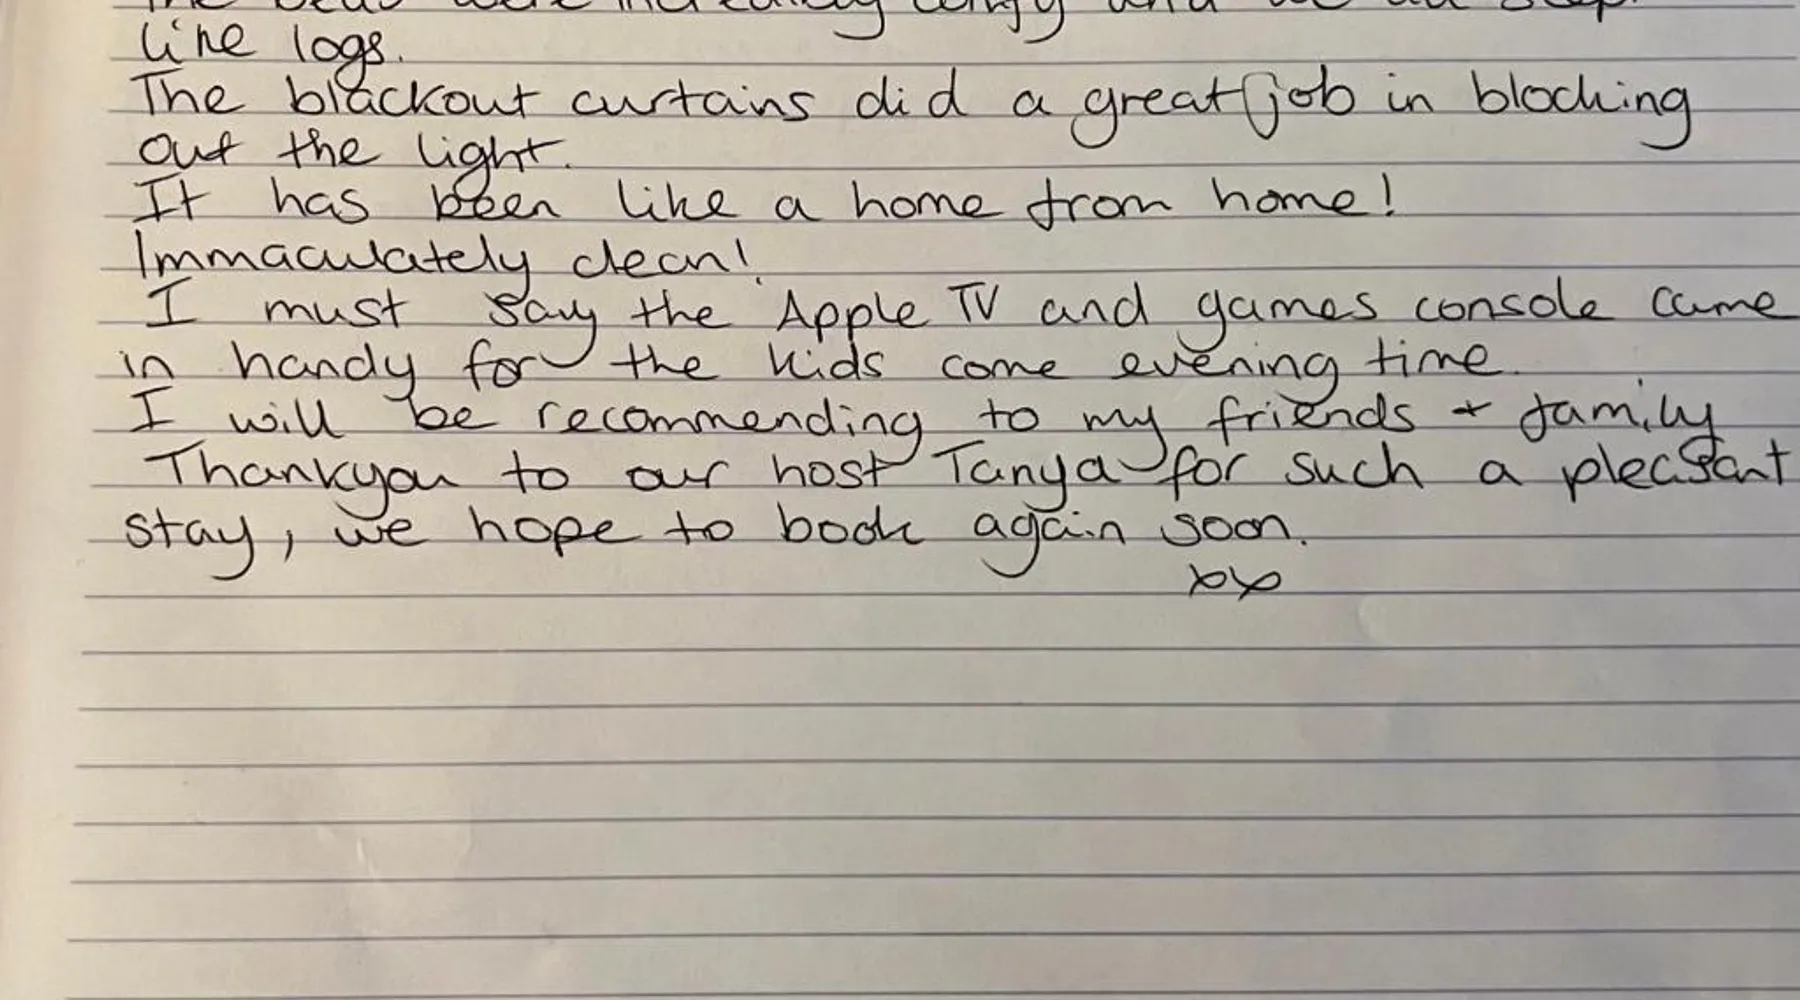 The beds were incredibly comfy and we all slept
like logs.
The blackout curtains did a great job in blocking
out the light.
It has been like a home from home!
Immaculately clean!
I must say the Apple TV and games console came
in handy for the kids come evening time.
I will be recommending to my friends + family
Thankyou to our host Tanya for such a pleasant
stay, we hope to book again soon.
xx